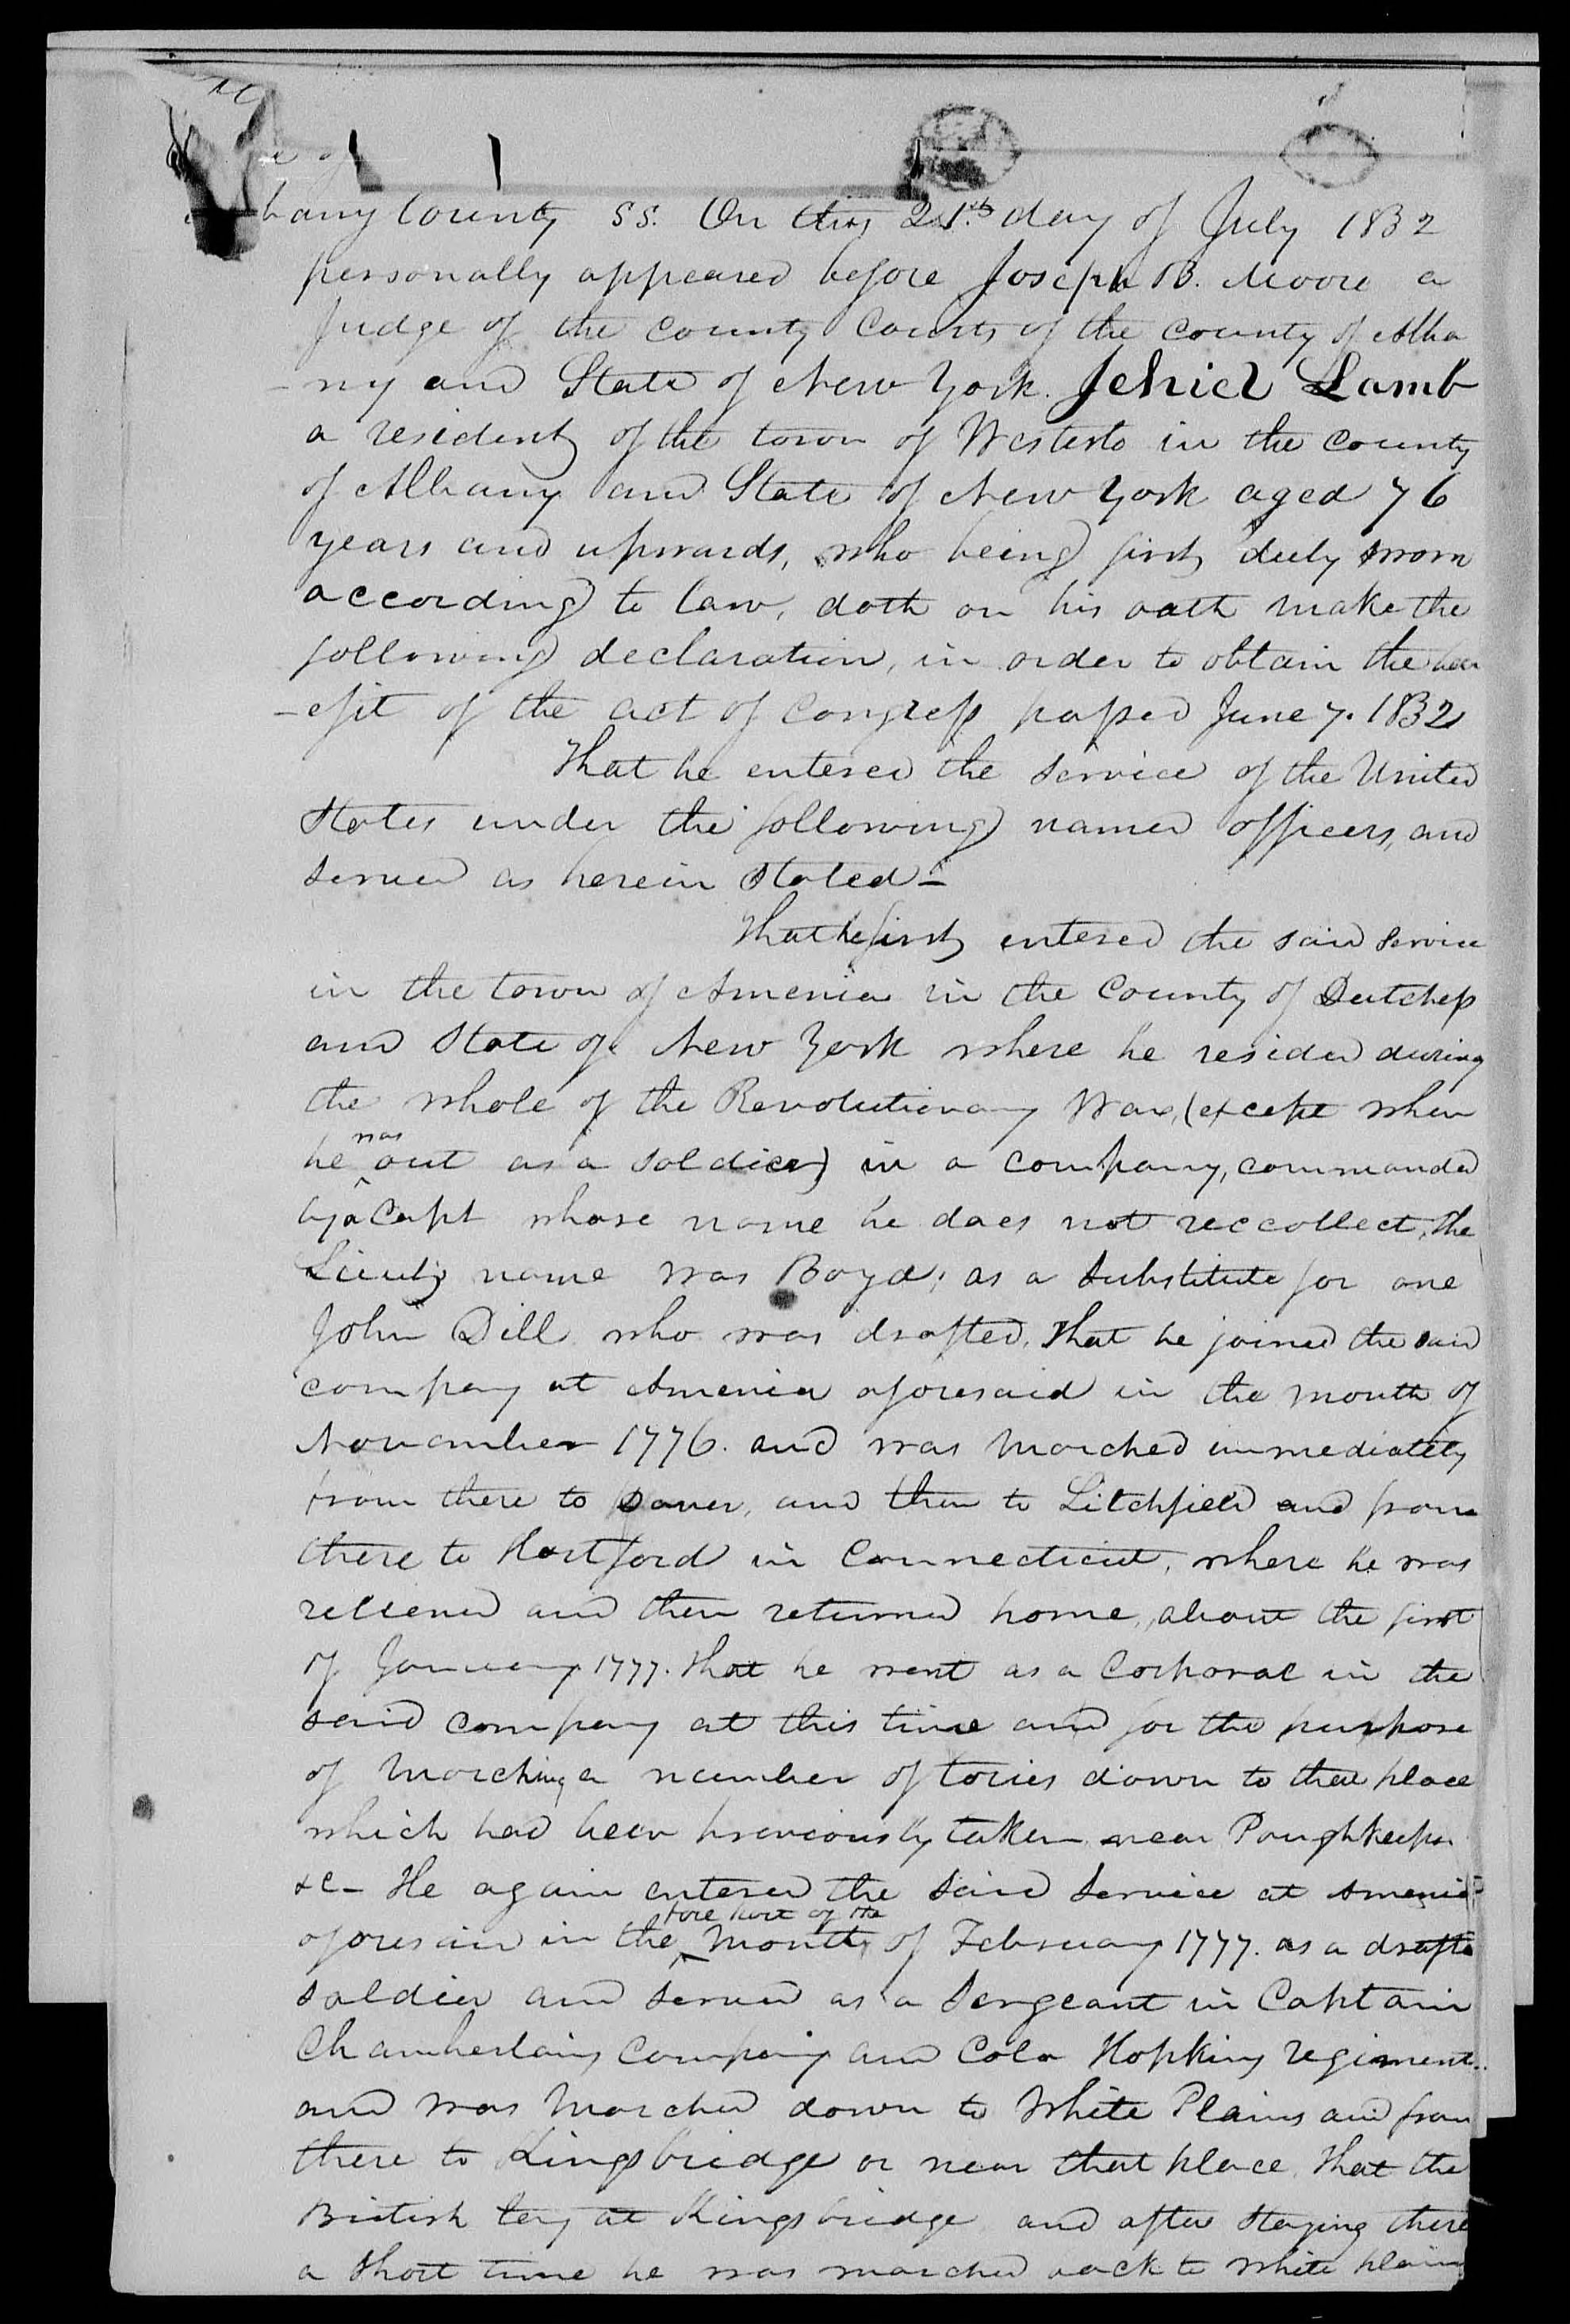 bany County SS. On this 21.st day of July 1832
personally appeared before Joseph B. Moore a
Judge of the County Courts of the County of Alba
-ny and State of New York. Jehiel Lamb
a resident of the town of Westerlo in the County
of Albany and State of New York aged 76
years and upwards, who being first duly sworn
according to law, doth on his oath make the
following declaration, in order to obtain the ben
-efit of the act of Congress passed June 7. 1832
That he entered the service of the United
States under the following named officers, and
served as herein stated -
That he first entered the said service
in the town of Amenia in the County of Dutchess
and State of New York where he resided during
the whole of the Revolutionary War, (except when
he was out as a soldier) in a company, commanded
by a Capt whose name he does not reccollect, the
Lieuts name was Boyd; as a substitute for one
John Dill who was drafted. That he joined the said
company at Amenia aforesaid in the month of
November 1776. and was marched immediately
from there to Dover, and then to Litchfield and from
there to Hartford in Connecticut, where he was
relieved and then returned home, about the first
of January 1777. that he went as a Corporal in the
said company at this time and for the purpose
of marching a number of tories down to that place
which had been previously taken near Poughkeepsie
&c - He again entered the said service at Amenia
aforesaid in the fore part of the month of February 1777. as a drafted
soldier and served as a Sergeant in Captain
Chamberlains Company and Colo Hopkins regiment
and was marched down to White Plains and from
there to Kingsbridge or near that place. That the
British lay at Kingsbridge and after staying there
a short time he was marched back to White plains